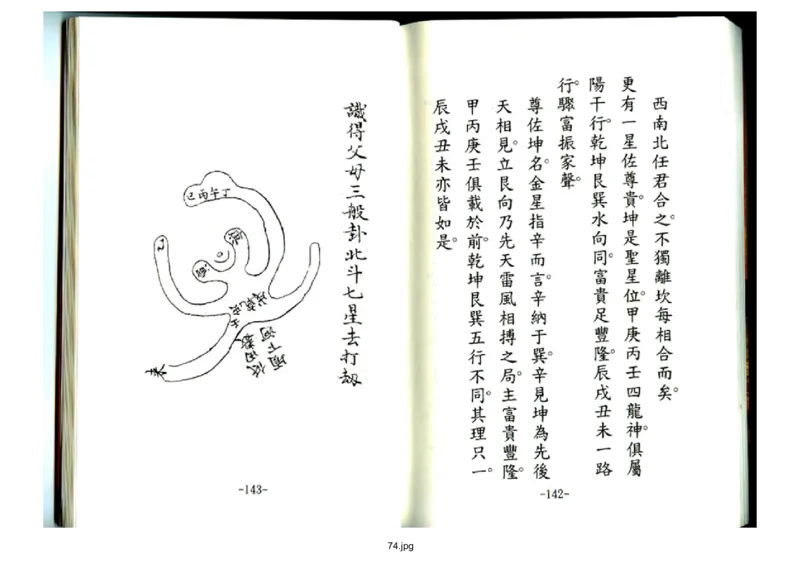 西南北任君合之。不獨離坎每相合而矣。
更有一星佐尊貴。坤是聖星位。甲庚丙壬四龍神。俱屬
陽干行。乾坤艮巽水向同。富貴足豐隆。辰戌丑未一路
行。驟富振家聲。
尊佐坤名。金星指辛而言。辛納于巽。辛見坤為先後
天相見。立艮向乃先天雷風相搏之局。主富貴豐隆。
甲丙庚壬俱載於前。乾坤艮巽五行不同。其理只一。
辰戌丑未亦皆如是。
-142-
識得父母三般卦北斗七星去打劫
巳丙午丁
-143-
74.jpg